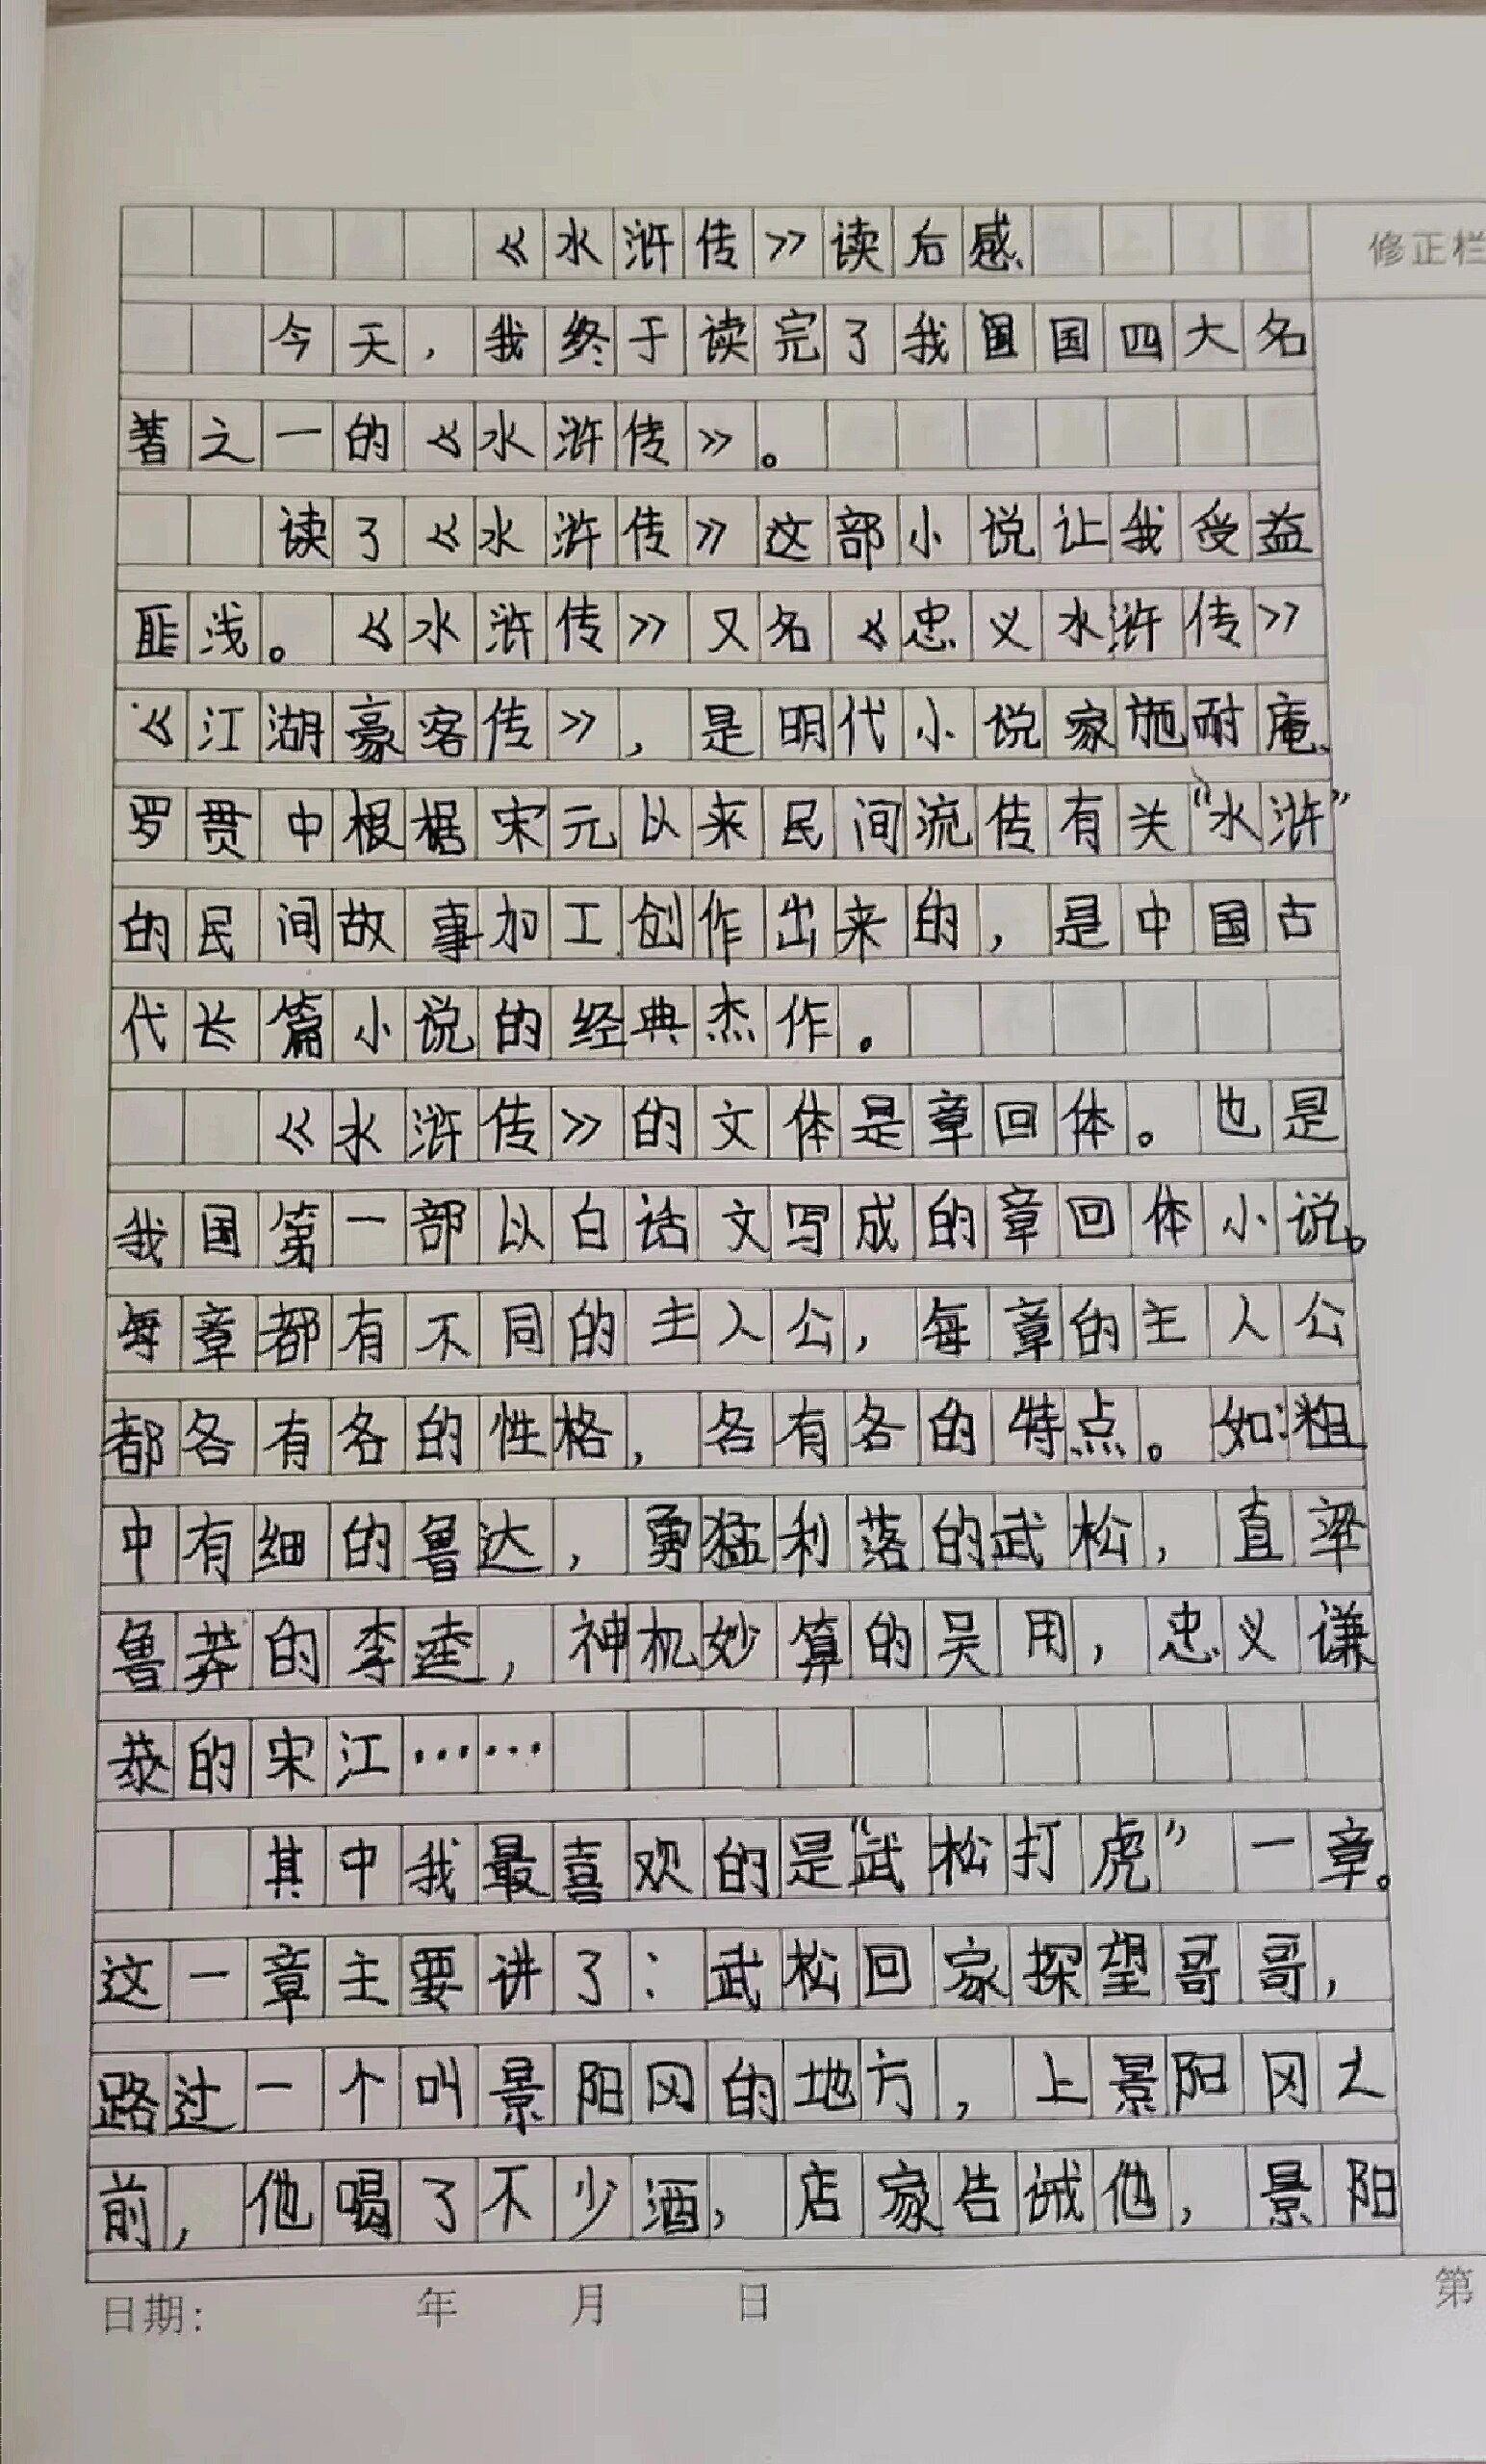 《水浒传》读后感
修正栏
今天，我终于读完了我国国四大名
著之一的《水浒传》。
读了《水浒传》这部小说让我受益
匪浅。《水浒传》又名《忠义水浒传》
《江湖豪客传》，是明代小说家施耐庵、
罗贯中根据宋元以来民间流传有关“水浒”
的民间故事加工创作出来的，是中国古
代长篇小说的经典杰作。
《水浒传》的文体是章回体。也是
我国第一部以白话文写成的章回体小说。
每章都有不同的主人公，每章的主人公
都各有各的性格，各有各的特点。如：粗
中有细的鲁达，勇猛利落的武松，直率
鲁莽的李逵，神机妙算的吴用，忠义谦
恭的宋江……
其中我最喜欢的是“武松打虎”一章。
这一章主要讲了：武松回家探望哥哥，
路过一个叫景阳冈的地方，上景阳冈之
前，他喝了不少酒，店家告诫他，景阳
日期：　年　月　日
第